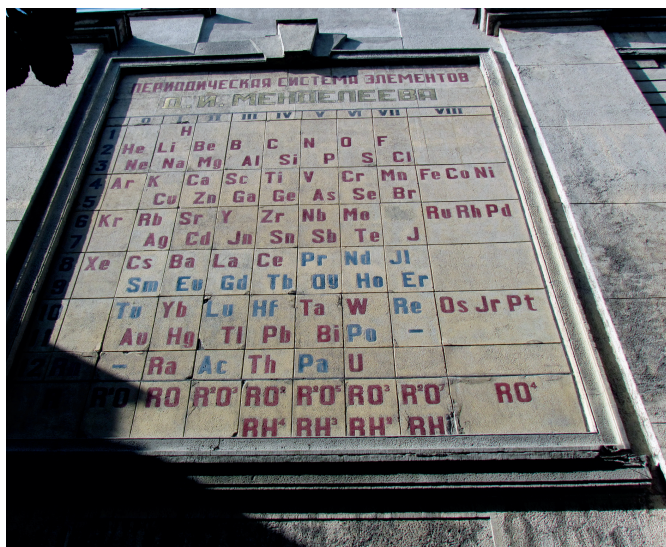 ПЕРИОДИЧЕСКАЯ СИСТЕМА ЭЛЕМЕНТОВ
Д. И. МЕНДЕЛЕЕВА
0 I II III IV V VI VII VIII
1 H
2 He Li Be B C N O F
3 Ne Na Mg Al Si P S Cl
4 Ar K Ca Sc Ti V Cr Mn Fe Co Ni
5 Cu Zn Ga Ge As Se Br
6 Kr Rb Sr Y Zr Nb Mo Ru Rh Pd
7 Ag Cd Jn Sn Sb Te J
8 Xe Cs Ba La Ce Pr Nd Jl
9 Sm Eu Gd Tb Dy Ho Er
10 Tu Yb Lu Hf Ta W Re Os Jr Pt
Au Hg Tl Pb Bi Po –
2 Rn – Ra Ac Th Pa U
R²O RO R²O³ RO² R²O⁵ RO³ R²O⁷ RO⁴
RH⁴ RH³ RH² RH